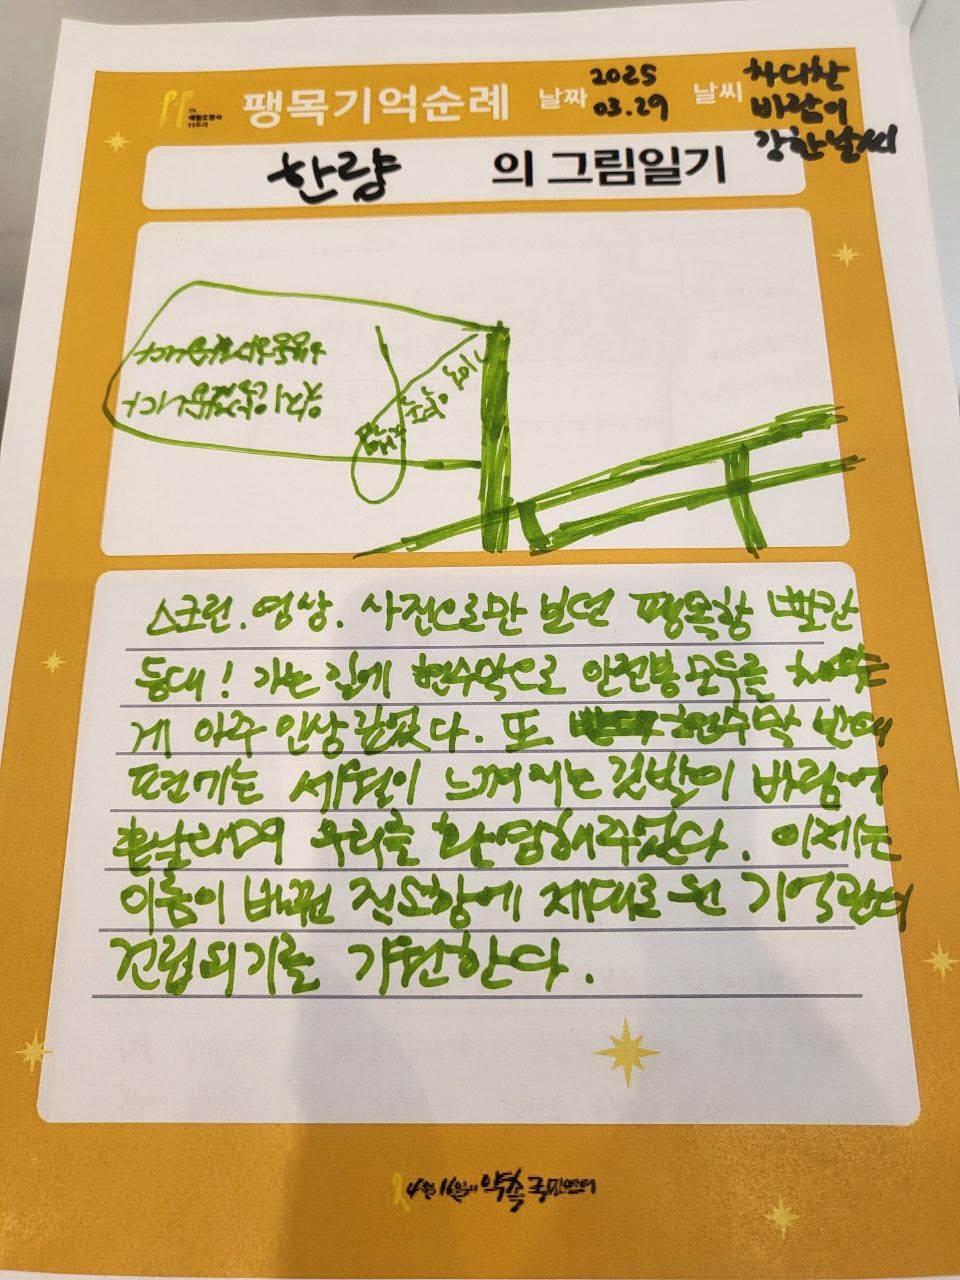 세월호참사
11주기
팽목기억순례 날짜 2025 03.29 날씨 차디찬 바람이 강한날씨
한량 의 그림일기
잊지 않겠습니다
팽목 기억
스크린. 영상. 사진으로만 보던 팽목항 빨간
등대! 가는 길에 현수막으로 안전봉 모두를
게 아주 인상깊었다. 또 현수막 반대
편에는 세월이 느껴지는 깃발이 바람에
흩날리며 우리를 환영해주었다. 이제는
이름이 바뀐 진도항에 제대로 된 기억관이
건립되기를 기원한다.
4월16일의 약속 국민연대